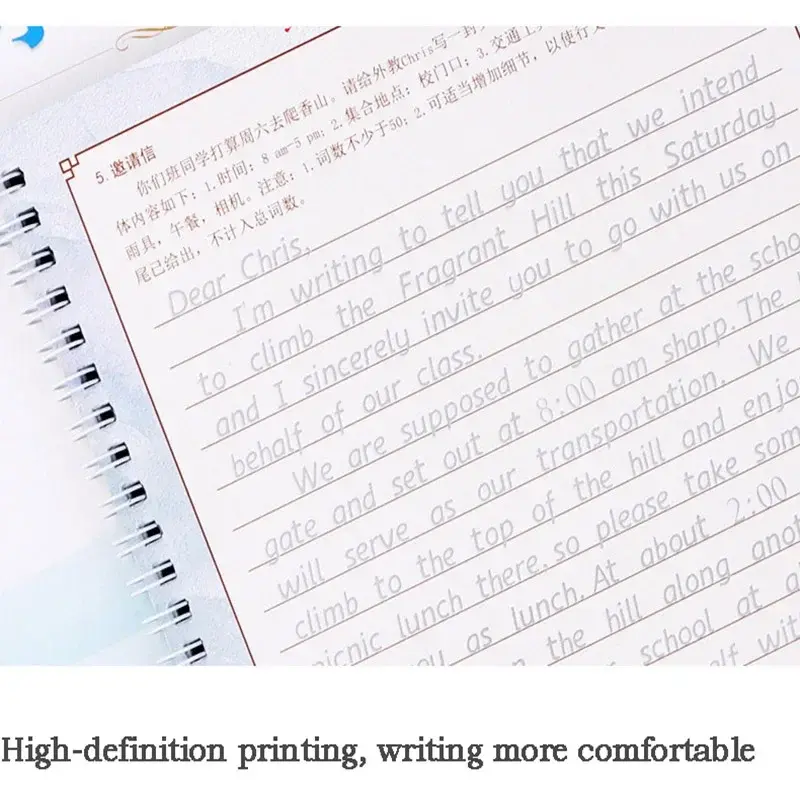 5.邀请信
你们班同学打算周六去爬香山。请给外教Chris写一封
体内容如下：1.时间：8 am-5 pm；2.集合地点：校门口；3.交通工
雨具，午餐，相机。注意：1.词数不少于50；2.可适当增加细节，以使行文
尾已给出，不计入总词数。
Dear Chris,
I'm writing to tell you that we intend
to climb the Fragrant Hill this Saturday
and I sincerely invite you to go with us on
behalf of our class.
We are supposed to gather at the scho
gate and set out at 8:00 am sharp. The
will serve as our transportation. We
climb to the top of the hill and enjo
picnic lunch there, so please take som
you as lunch. At about 2:00
the hill along anot
school at
with
High-definition printing, writing more comfortable